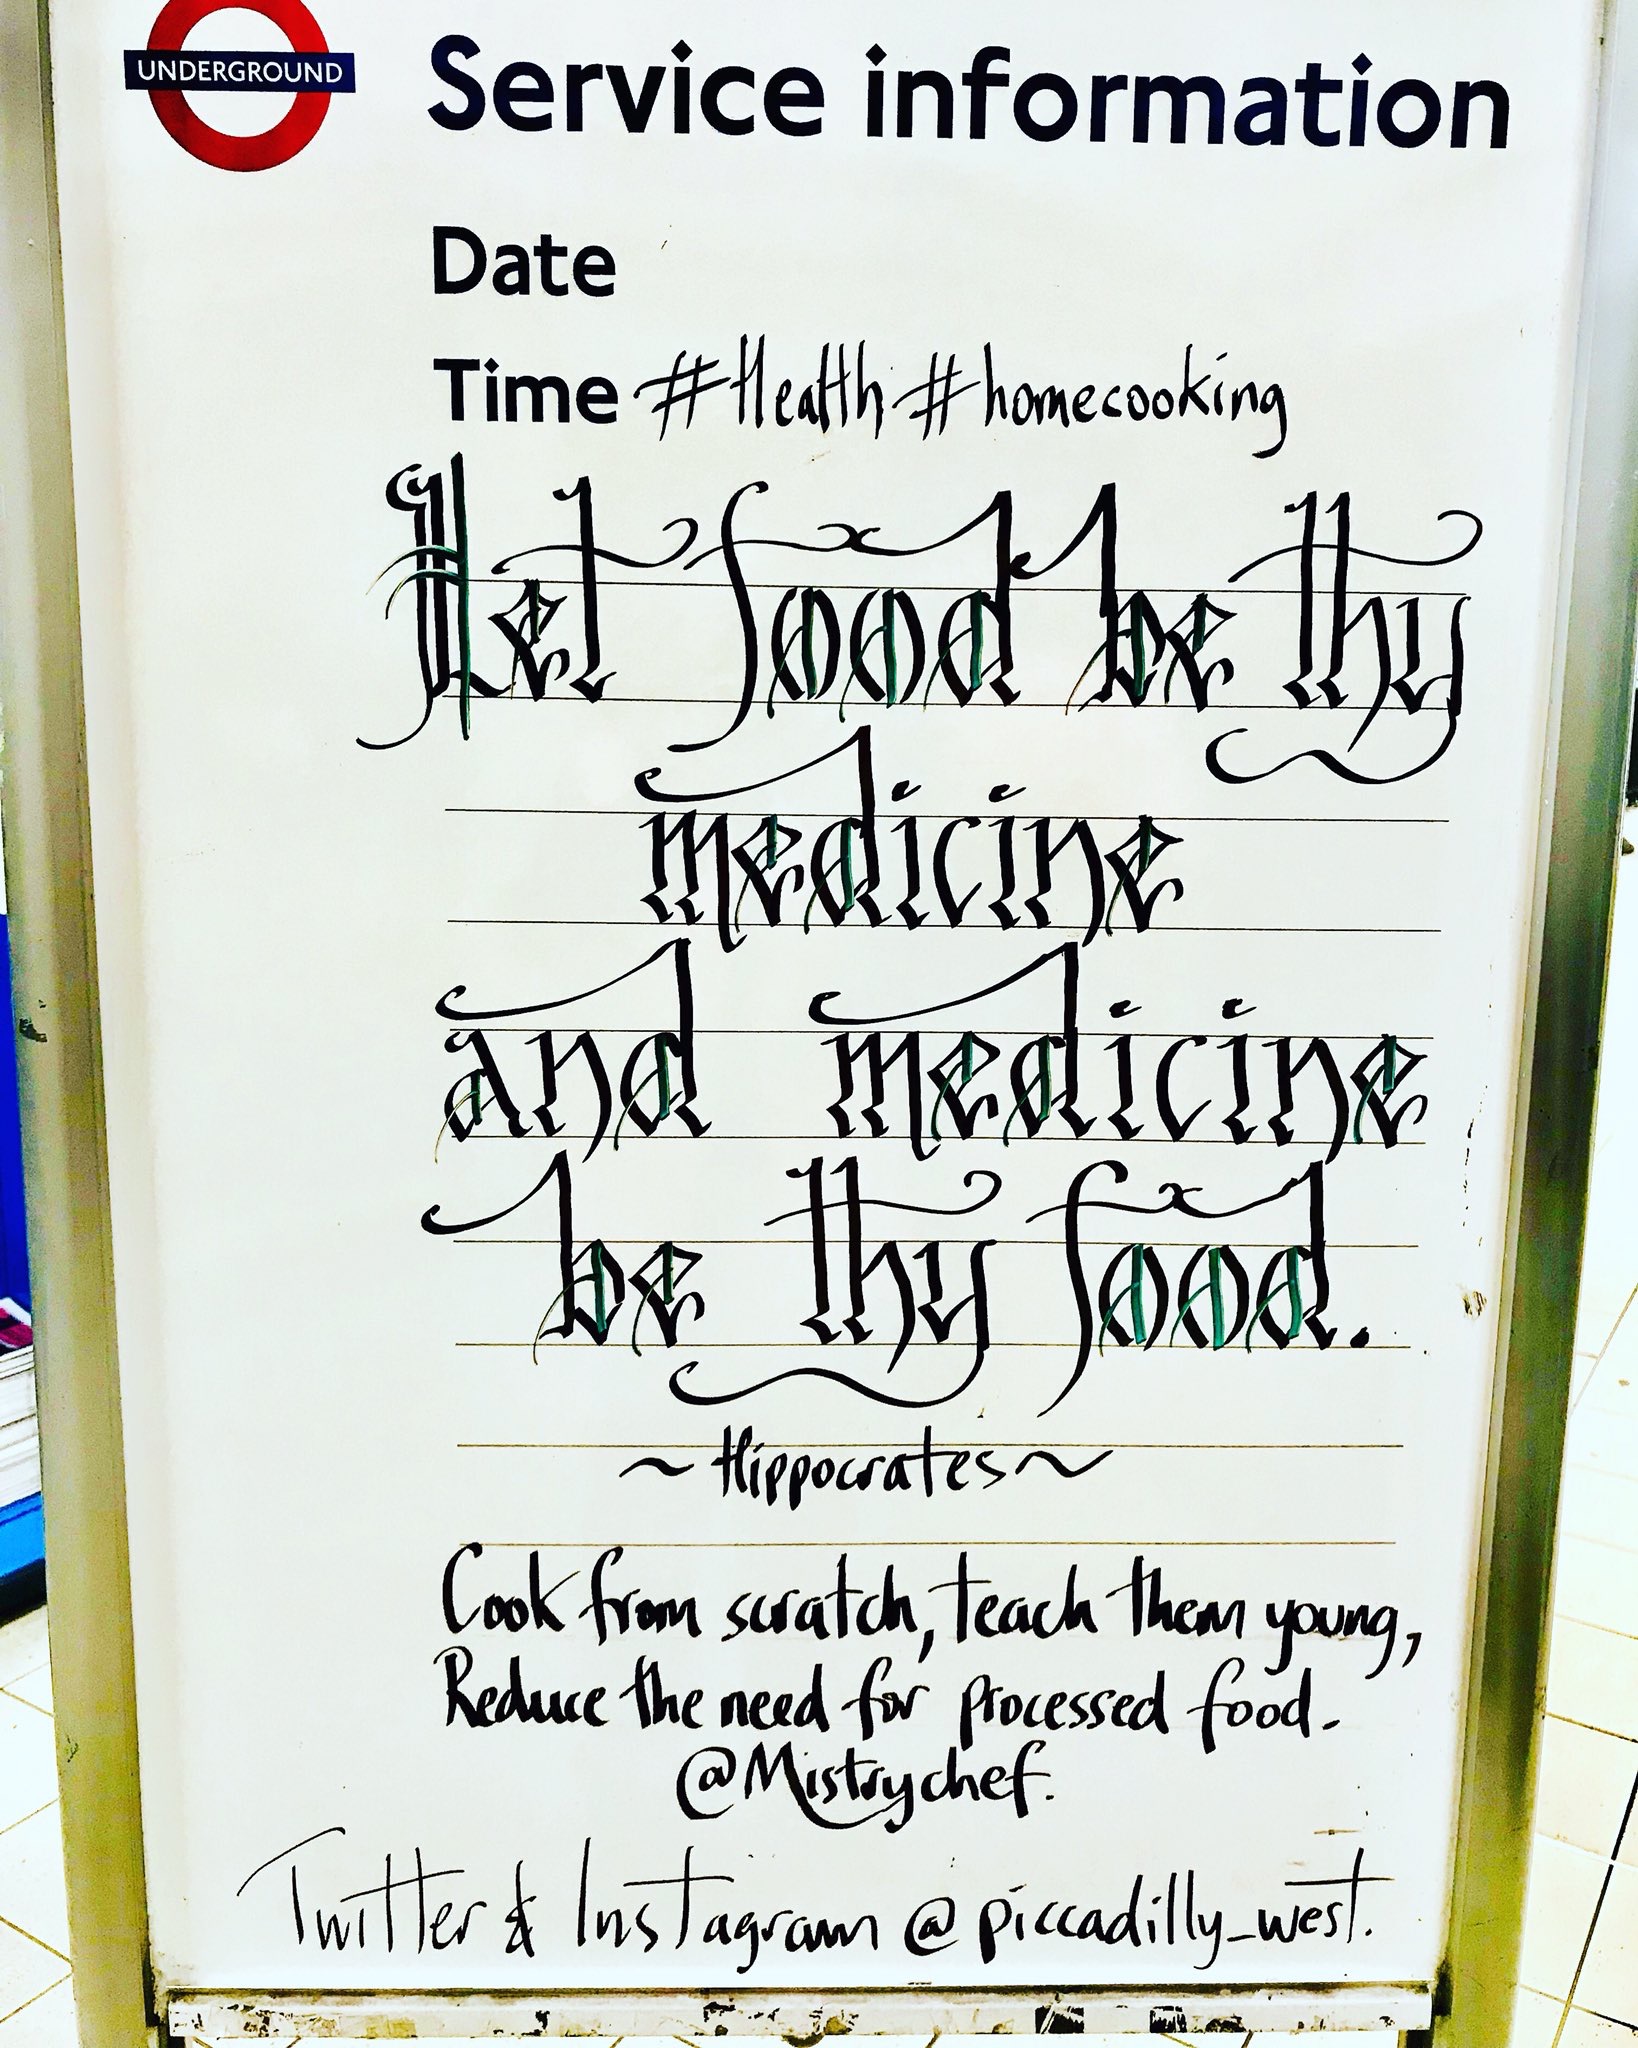 UNDERGROUND
Service information
Date
Time #Health #homecooking
Let food be thy
medicine
and medicine
be thy food.
~Hippocrates~
Cook from scratch, teach them young,
Reduce the need for processed food.
@Mistrychef.
Twitter & Instagram @piccadilly_west.